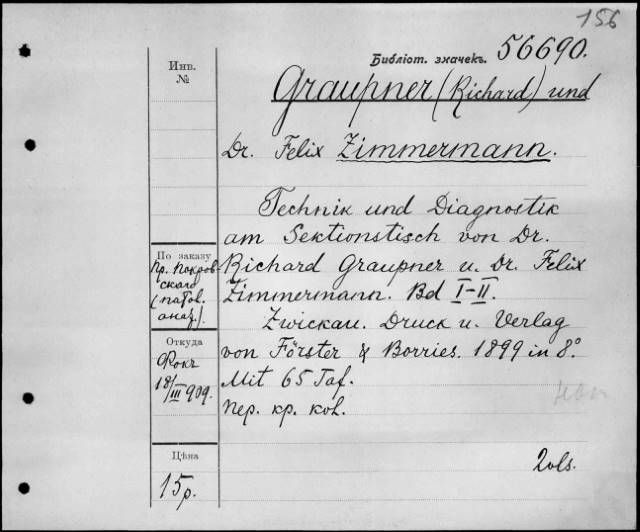 156
Библіот. значекъ. 56690.
Graupner (Richard) und
Dr. Felix Zimmermann.
Technik und Diagnostik
am Sektionstisch von Dr.
Richard Graupner u. Dr. Felix
Zimmermann. Bd I-II.
Zwickau. Druck u. Verlag
von Förster & Borries. 1899 in 8°.
Mit 65 Taf.
пер. кр. кол.
2ols.
Инв.
№
По заказу
пр. Покров-
скаго
(патол.
анат.).
Откуда
Фокъ
18/III 909.
Цѣна
15 р.